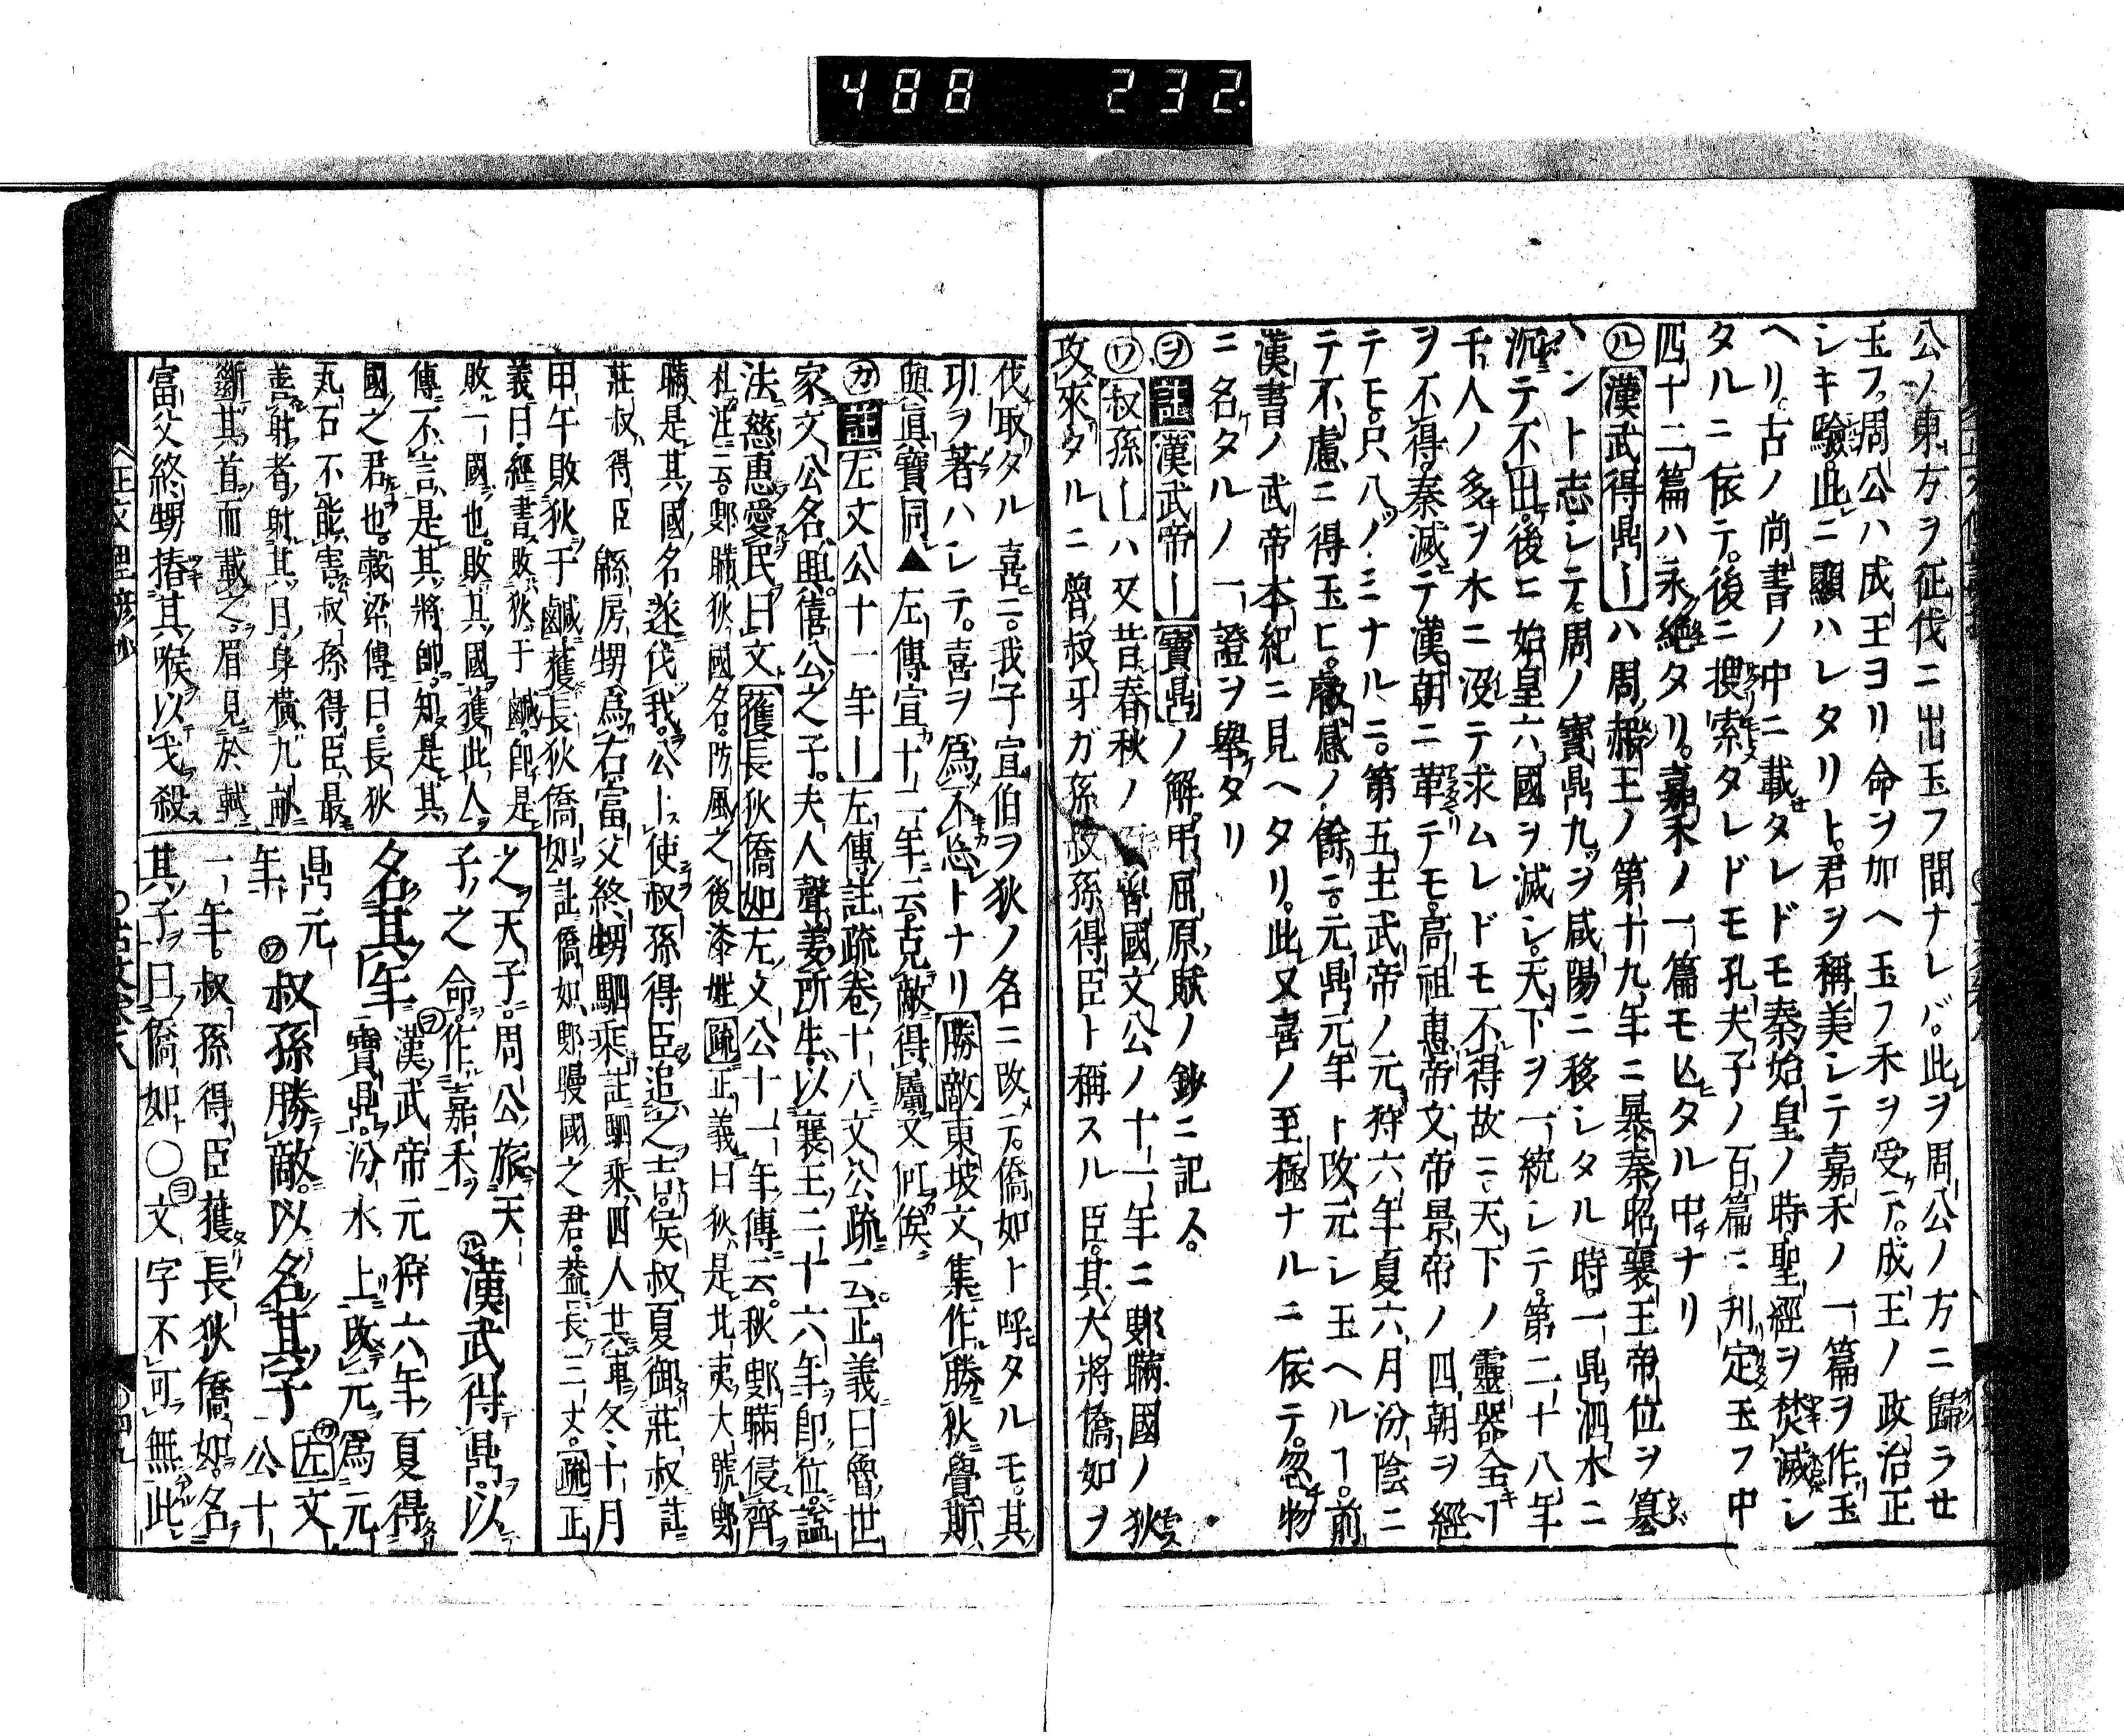 488 232
公ノ東方ヲ征伐ニ出玉フ間ナレバ。此ヲ周公ノ方ニ歸ラセ
玉フ。周公ハ成王ヨリ命ヲ加ヘ玉フ禾ヲ受ケ下。成王ノ政治正
シキ驗。此ニ顯ハレタリト。君ヲ稱美シテ嘉禾ノ一篇ヲ作玉
ヘリ。古ノ尚書ノ中ニ載タレドモ秦始皇ノ時。聖經ヲ焚滅シ
タルニ依テ。後ニ搜索タレドモ孔夫子ノ百篇ニ刊定玉フ中
四十二篇ハ永絶タリ。嘉禾ノ一篇モ亡タル中ナリ
㋸漢武得鼎〡ハ周赧王ノ第十九年ニ暴秦昭襄王帝位ヲ簒
ハント志シテ。周ノ寶鼎九ヲ咸陽ニ移シタル時。一鼎泗水ニ
沉テ不出。後ニ始皇六國ヲ滅シ。天下ヲ一統シテ。第二十八年
千人ノ多ヲ水ニ沒テ求ムレドモ不得故ニ天下ノ靈器全ヿ
ヲ不得。秦滅テ漢朝ニ革テモ。高祖惠帝文帝景帝ノ四朝ヲ經
テモ。只八ノミナルニ。第五主武帝ノ元狩六年夏六月汾陰ニ
テ不慮ニ得玉ヒ。叡感ノ餘ニ。元鼎元年ト改元シ玉ヘルヿ。前
漢書ノ武帝本紀ニ見ヘタリ。此又喜ノ至極ナルニ依テ。忽物
ニ名タルノ一證ヲ舉タリ
㋾註漢武帝〡寶鼎ノ解。弔屈原賦ノ鈔ニ記ス。
㋻叔孫〡ハ又昔春秋ノ魯國文公ノ十一年ニ鄋瞞國ノ狄
攻來タルニ曾叔牙ガ孫叔孫得臣ト稱スル臣。其大將僑如ヲ
伐取タル喜ニ。我子宣伯ヲ狄ノ名ニ改テ。僑如ト呼タルモ。其
功ヲ著ハシテ。喜ヲ爲不忘トナリ勝敵東坡文集作勝狄舋斯
與眞寶同▲左傳宣十二年云。克敵得屬又何俟
㋕註左文公十一年〡左傳註疏卷十八文公疏云。正義曰魯世
家文公名興。僖公之子。夫人聲姜所生。以襄王二十六年即位。謚
法慈惠愛民曰文獲長狄僑如左文公十一年傳云。秋鄋瞞侵齊
杜注云。鄋瞞狄國名。防風之後漆姓疏正義曰狄是北夷大號。鄋
瞞是其國名遂伐我。公卜使叔孫得臣追之吉。侯叔夏御莊叔註
莊叔得臣緜房甥爲右富父終甥駟乘註駟乘四人共車冬十月
甲午敗狄于鹹獲長狄僑如註僑如鄋瞞國之君。蓋長三丈。疏正
義曰。經書敗狄于鹹。即是
敗一國也。敗其國獲此人
傳不言是其將帥。知是其
國之君也。穀梁傳曰。長狄
瓦石不能害。叔孫得臣最
善射者。射其目。身橫九畝
斷其首而載之。眉見於軾
富父終甥摏其喉以戈殺
之天子。周公旅天
子之命。作嘉禾
㋸漢武得鼎。以
名其年
㋾漢武帝元狩六年夏得
寶鼎汾水上改元爲元
鼎元
年
㋻叔孫勝敵。以名其子
㋕左文
公十
一年。叔孫得臣獲長狄僑如。名
其子曰僑如
〇㋵文字不可無此